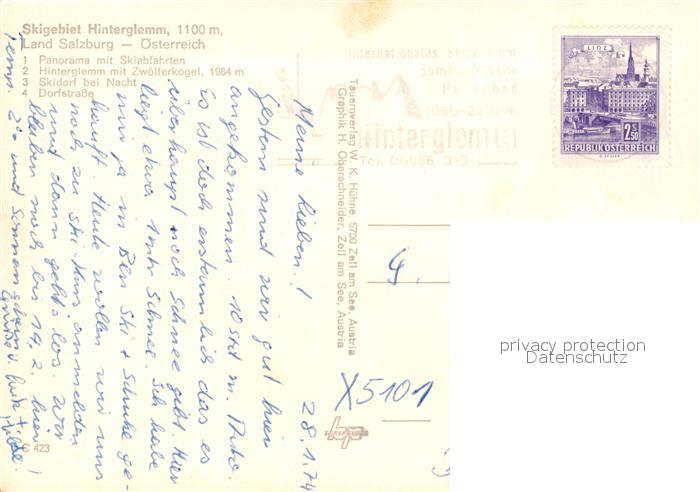 Skigebiet Hinterglemm, 1100 m,
Land Salzburg — Österreich
1 Panorama mit Skiabfahrten
2 Hinterglemm mit Zwölferkogel, 1984 m
3 Skidorf bei Nacht
4 Dorfstraße
Internationales Skizentrum
Sommerfrische
Hallenbad
1050-2200m
Hinterglemm
Tel. 06586 313
LINZ
2.50
REPUBLIK ÖSTERREICH
Tauernverlag W. K. Hühne, 5700 Zell am See, Austria
Graphik H. Oberschneider, Zell am See, Austria
28.1.74
Meine Lieben!
Gestern sind wir gut hier
angekommen. 10 Std m. Auto.
Es ist doch erstaunlich das es
überhaupt noch Schnee gibt. Hier
liegt etwa 1 mtr Schnee. Ich habe
mir ja in Bln Ski + Schuhe ge-
kauft. Heute wollen wir uns
noch zu Ski-Kurs anmelden
und dann geht's los. Wir
bleiben noch bis 14.2. hier
Temp. 2° und Sonnenschein
Grüße u.
X5101
bp
C 423
privacy protection
Datenschutz